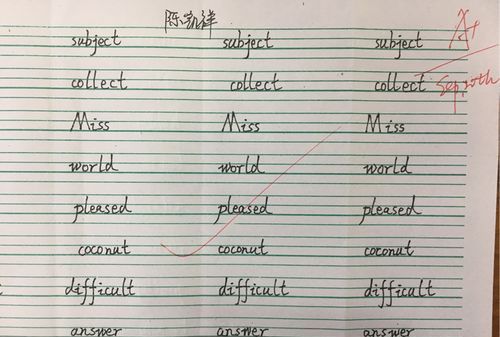 陈凯祥
subject subject subject A+
collect collect collect Sep.20th
Miss Miss Miss
world world world
pleased pleased pleased
coconut coconut coconut
difficult difficult difficult
answer answer answer